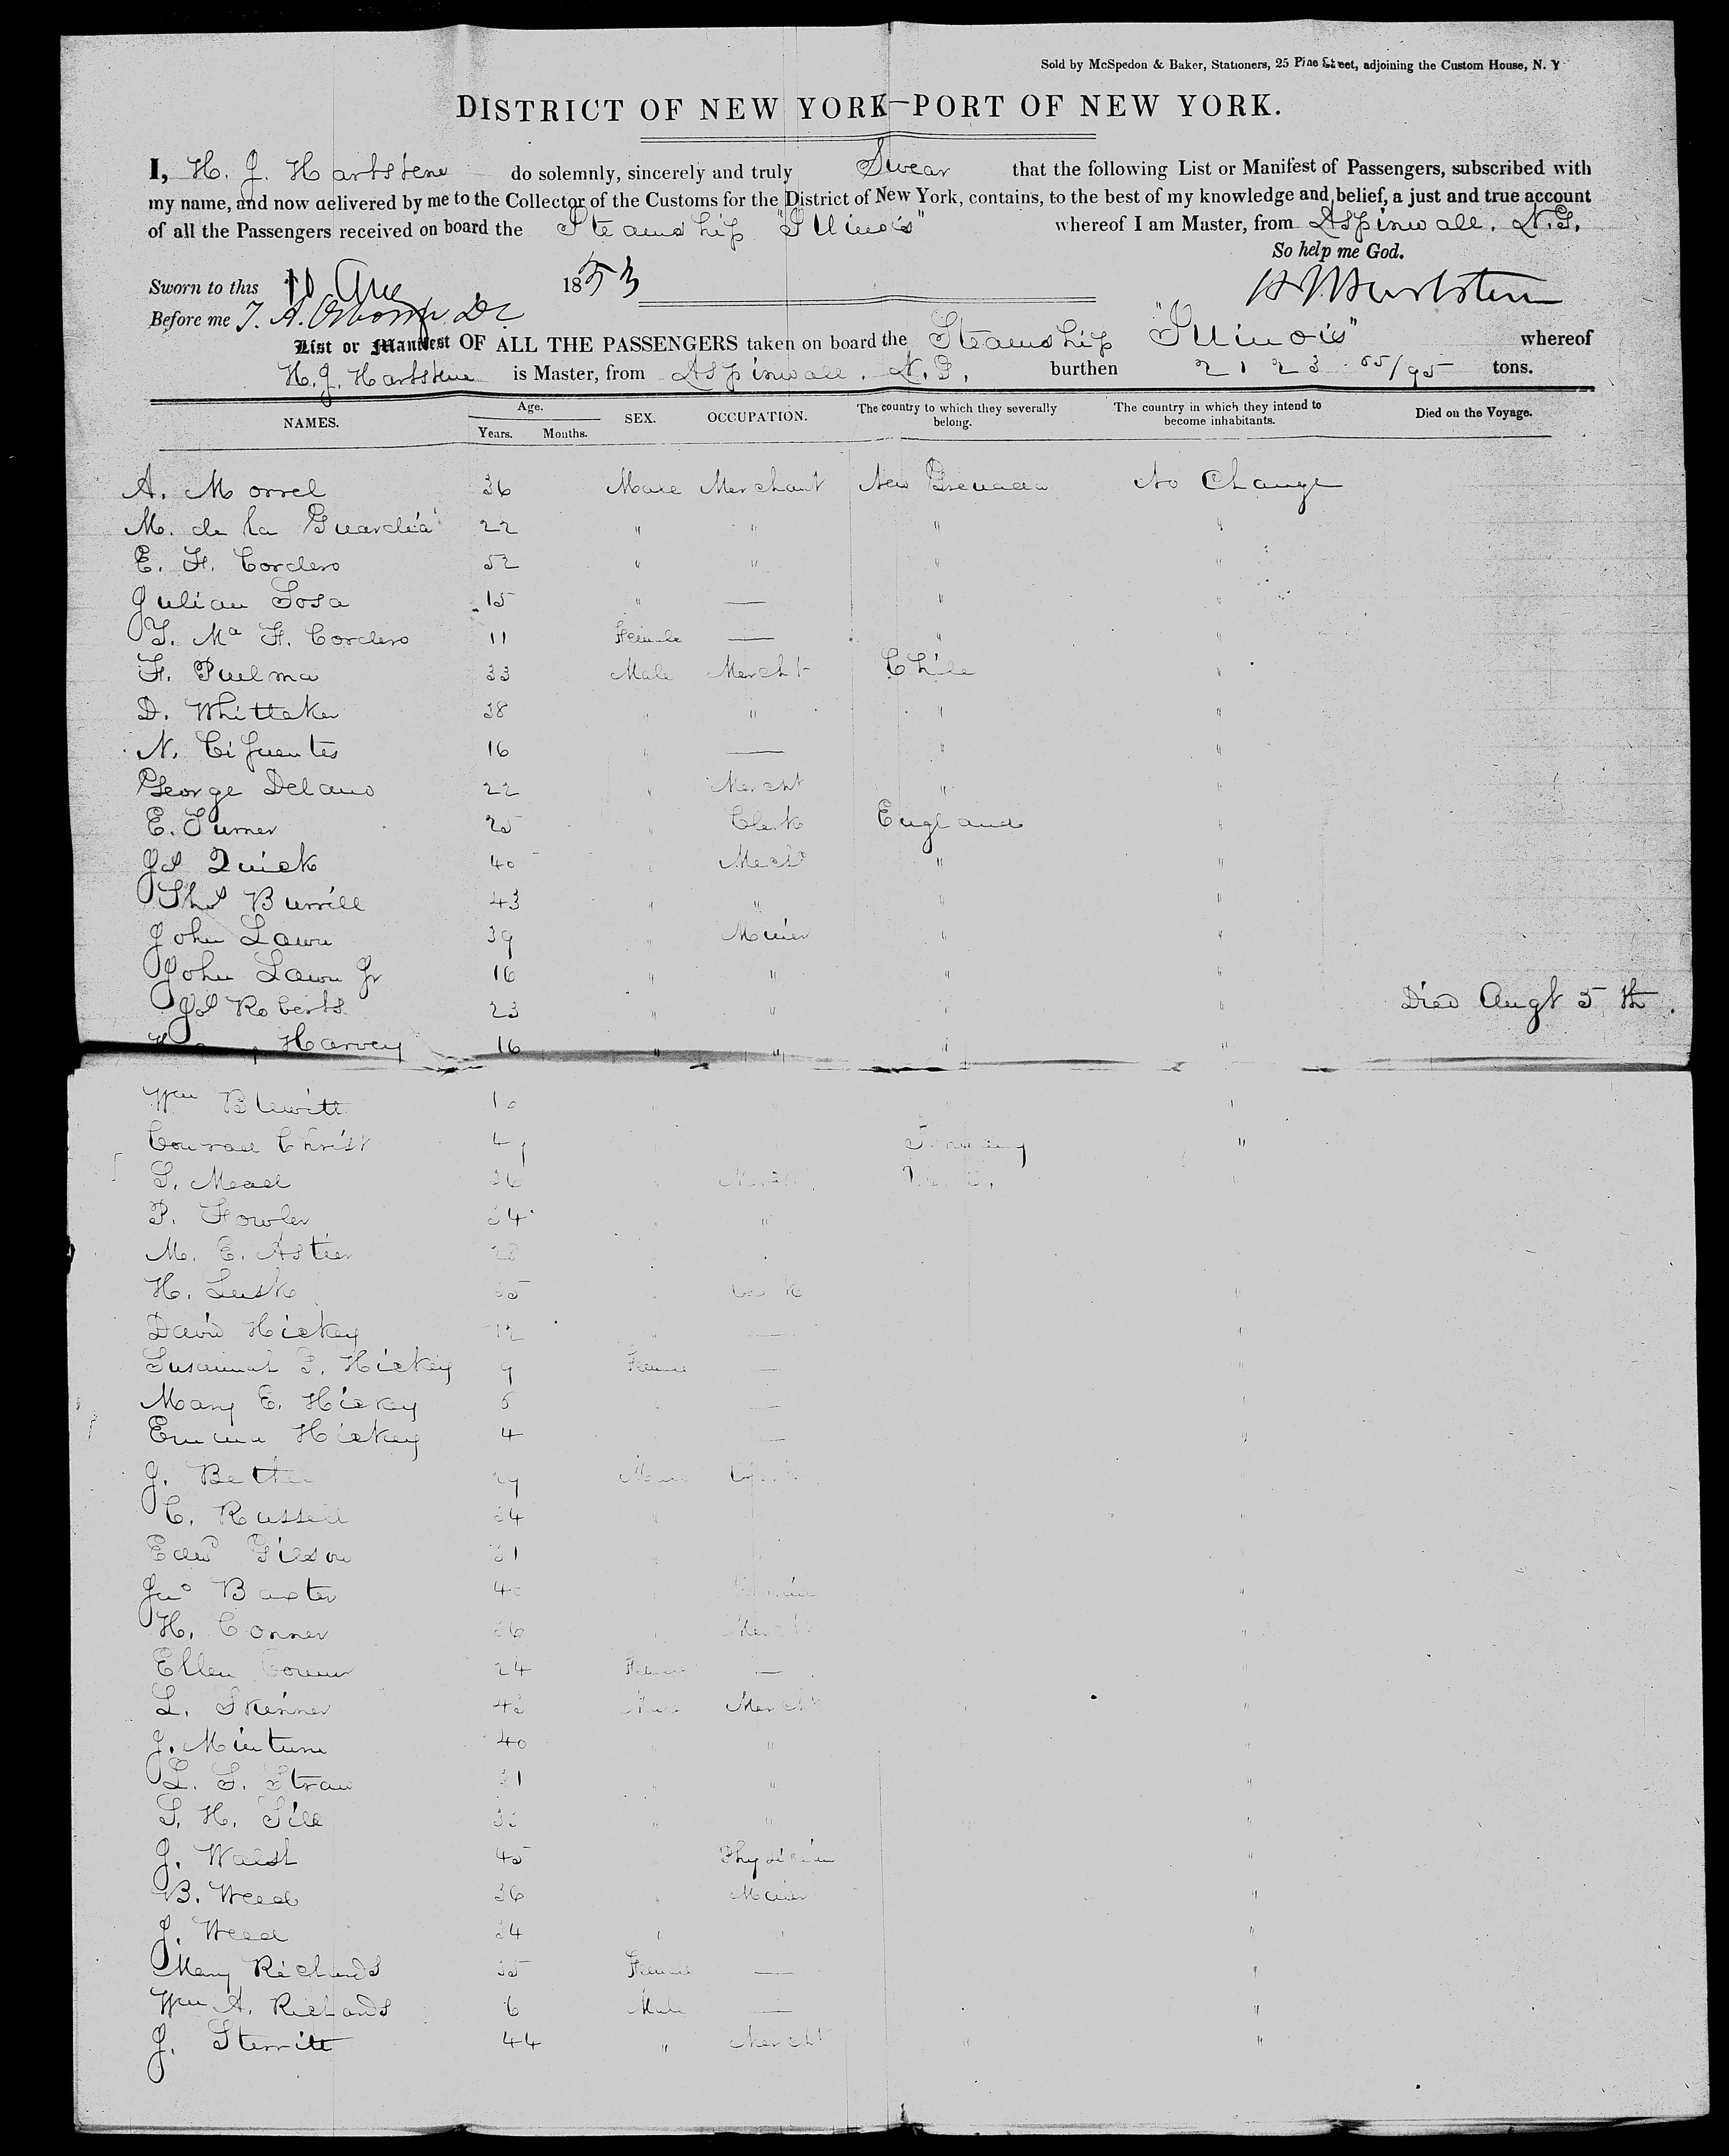 Sold by McSpedon & Baker, Stationers, 25 Pine Street, adjoining the Custom House, N. Y
DISTRICT OF NEW YORK—PORT OF NEW YORK.
I, H. J. Hartstene do solemnly, sincerely and truly Swear that the following List or Manifest of Passengers, subscribed with
my name, and now delivered by me to the Collector of the Customs for the District of New York, contains, to the best of my knowledge and belief, a just and true account
of all the Passengers received on board the Steamship "Illinois" whereof I am Master, from Aspinwall. N.G.
So help me God.
Sworn to this 10 Aug 1853
Before me
List or Manifest OF ALL THE PASSENGERS taken on board the Steamship "Illinois" whereof
H. J. Hartstene is Master, from Aspinwall. N.G. burthen 2123 65/95 tons.
NAMES. Age. SEX. OCCUPATION. The country to which they severally belong. The country in which they intend to become inhabitants. Died on the Voyage.
Years. Months.
A. Morrel 36 Male Merchant New Grenada No Change
M. de la Guardia 22 " " " "
E. F. Cordero 52 " " " "
Julian Sosa 15 " — " "
Ma F. Cordero 11 Female — " "
F. Puelma 33 Male Mercht Chile "
D. Whittaker 38 " " " "
N. Cifuentes 16 " — " "
George Delano 22 " Mercht " "
E. Turner 25 " Clerk England "
Js Quick 40 " Mecht " "
Thos Burrill 43 " " " "
John Lawn 39 " Miner " "
John Lawn Jr 16 " " " "
Js Roberts 23 " " " " Died Augt 5th
Harvey 16 " " " "
Wm Blewitt 16 "
Conrad Christ "
S. Mead 36 "
P. Fowler 34 "
M. E. Astier
H. Lusk 35 "
David Hickey 12 " — "
Susannah P. Hickey 9 Female — "
Mary E. Hickey —
Emma Hickey 4 — "
J. 29 Male
C. Russell 34 "
Edwd Gilson 31
Jno Baxter 40 "
H. Conner 36 Mercht "
Ellen Conner 24 Female —
L. Skinner Male Mercht "
J. Minturn 40 " "
L. S. Straw 31 " " "
S. H. Sill " " "
J. Walsh 45 Physician "
B. Weed 36 " Miner "
J. Weed 34 " " "
Mary Richards 35 Female — "
Wm A. Richards 6 Male — "
J. Sterritt 44 " Mercht " "